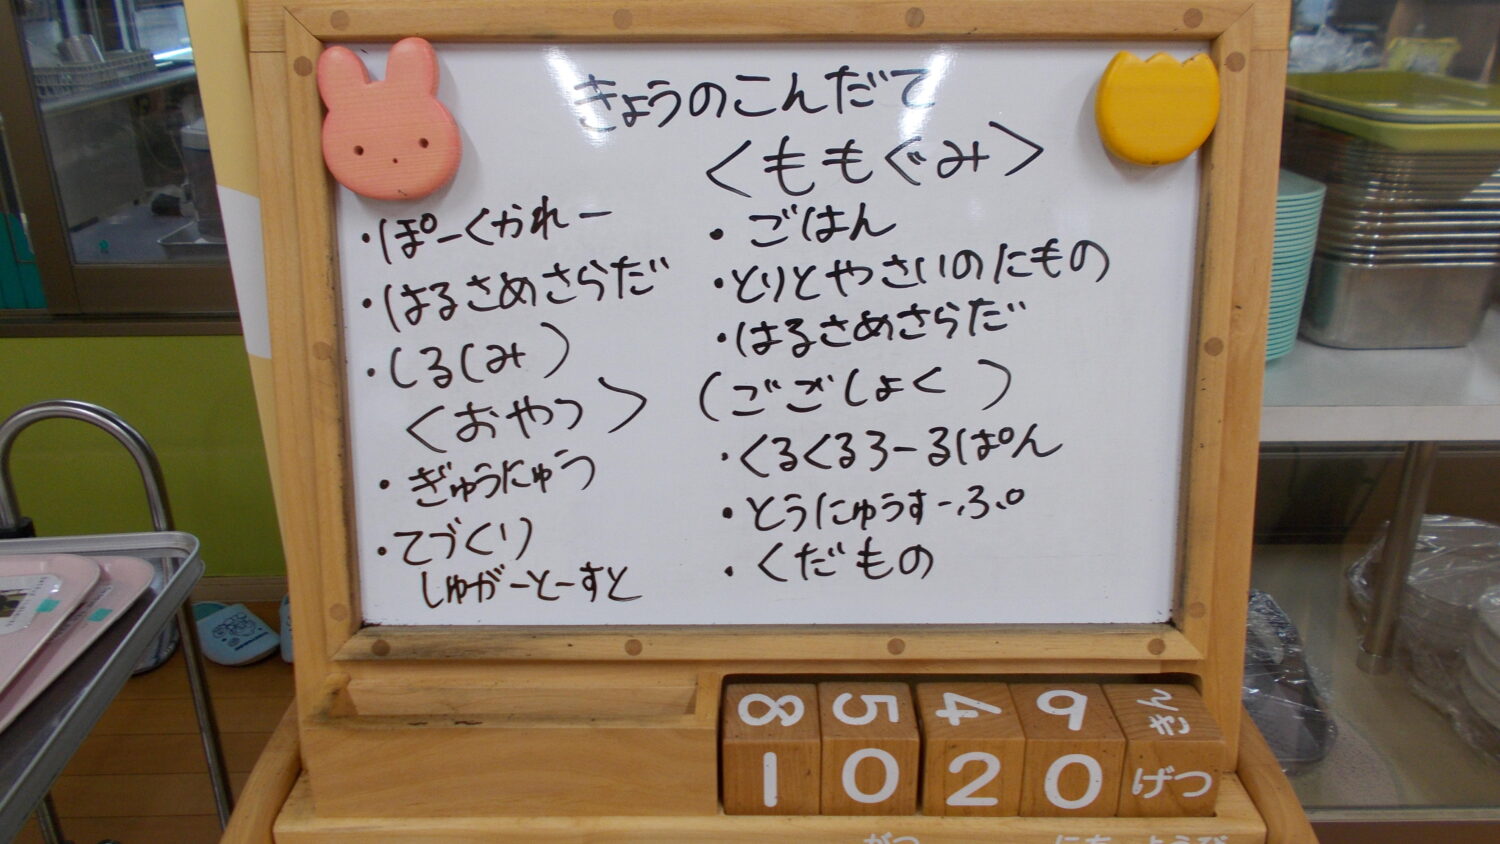 きょうのこんだて
・ぽーくかれー
・はるさめさらだ
・しるしみ)
<おやつ>
・ぎゅうにゅう
・てづくり
しゅがーとーすと
<ももぐみ>
・ごはん
・とりとやさいのにもの
・はるさめさらだ
(ごごしょく)
・くるくるろーるぱん
・とうにゅうすーぷ
・くだもの
8 5 4 9 きん
1 0 2 0 げつ
がつ にち ようび